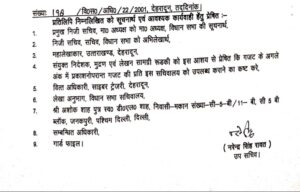 संख्या: 198 /वि०स०/अधि०/22/2001, देहरादून, तददिनांक।
प्रतिलिपि निम्नलिखित को सूचनार्थ एवं आवश्यक कार्यवाही हेतु प्रेषित :-
१. प्रमुख निजी सचिव, मा० अध्यक्ष को मा० अध्यक्ष, विधान सभा की सूचनार्थ,
२. निजी सचिव, सचिव, विधान सभा को अभिलेखार्थ,
३. महालेखाकार, उत्तराखण्ड, देहरादून,
४. संयुक्त निदेशक, मुद्रण एवं लेखन सामग्री रूडकी को इस आशय से प्रेषित कि गजट के अगले
अंक में प्रकाशनोपरान्त गजट की प्रति इस सचिवालय को उपलब्ध कराने का कष्ट करें,
५. वित्त अधिकारी, साइबर ट्रेजरी, देहरादून,
६. लेखा अनुभाग, विधान सभा सचिवालय,
७. श्री अशोक शाह पुत्र स्व० डी०एल० शाह, निवासी-मकान संख्या-सी-५-बी/11- बी, सी 5 बी
ब्लॉक, जनकपुरी, पश्चिम दिल्ली, दिल्ली,
८. सम्बन्धित अधिकारी,
९. गार्ड फाईल।
( नरेन्द्र सिंह रावत )
उप सचिव।